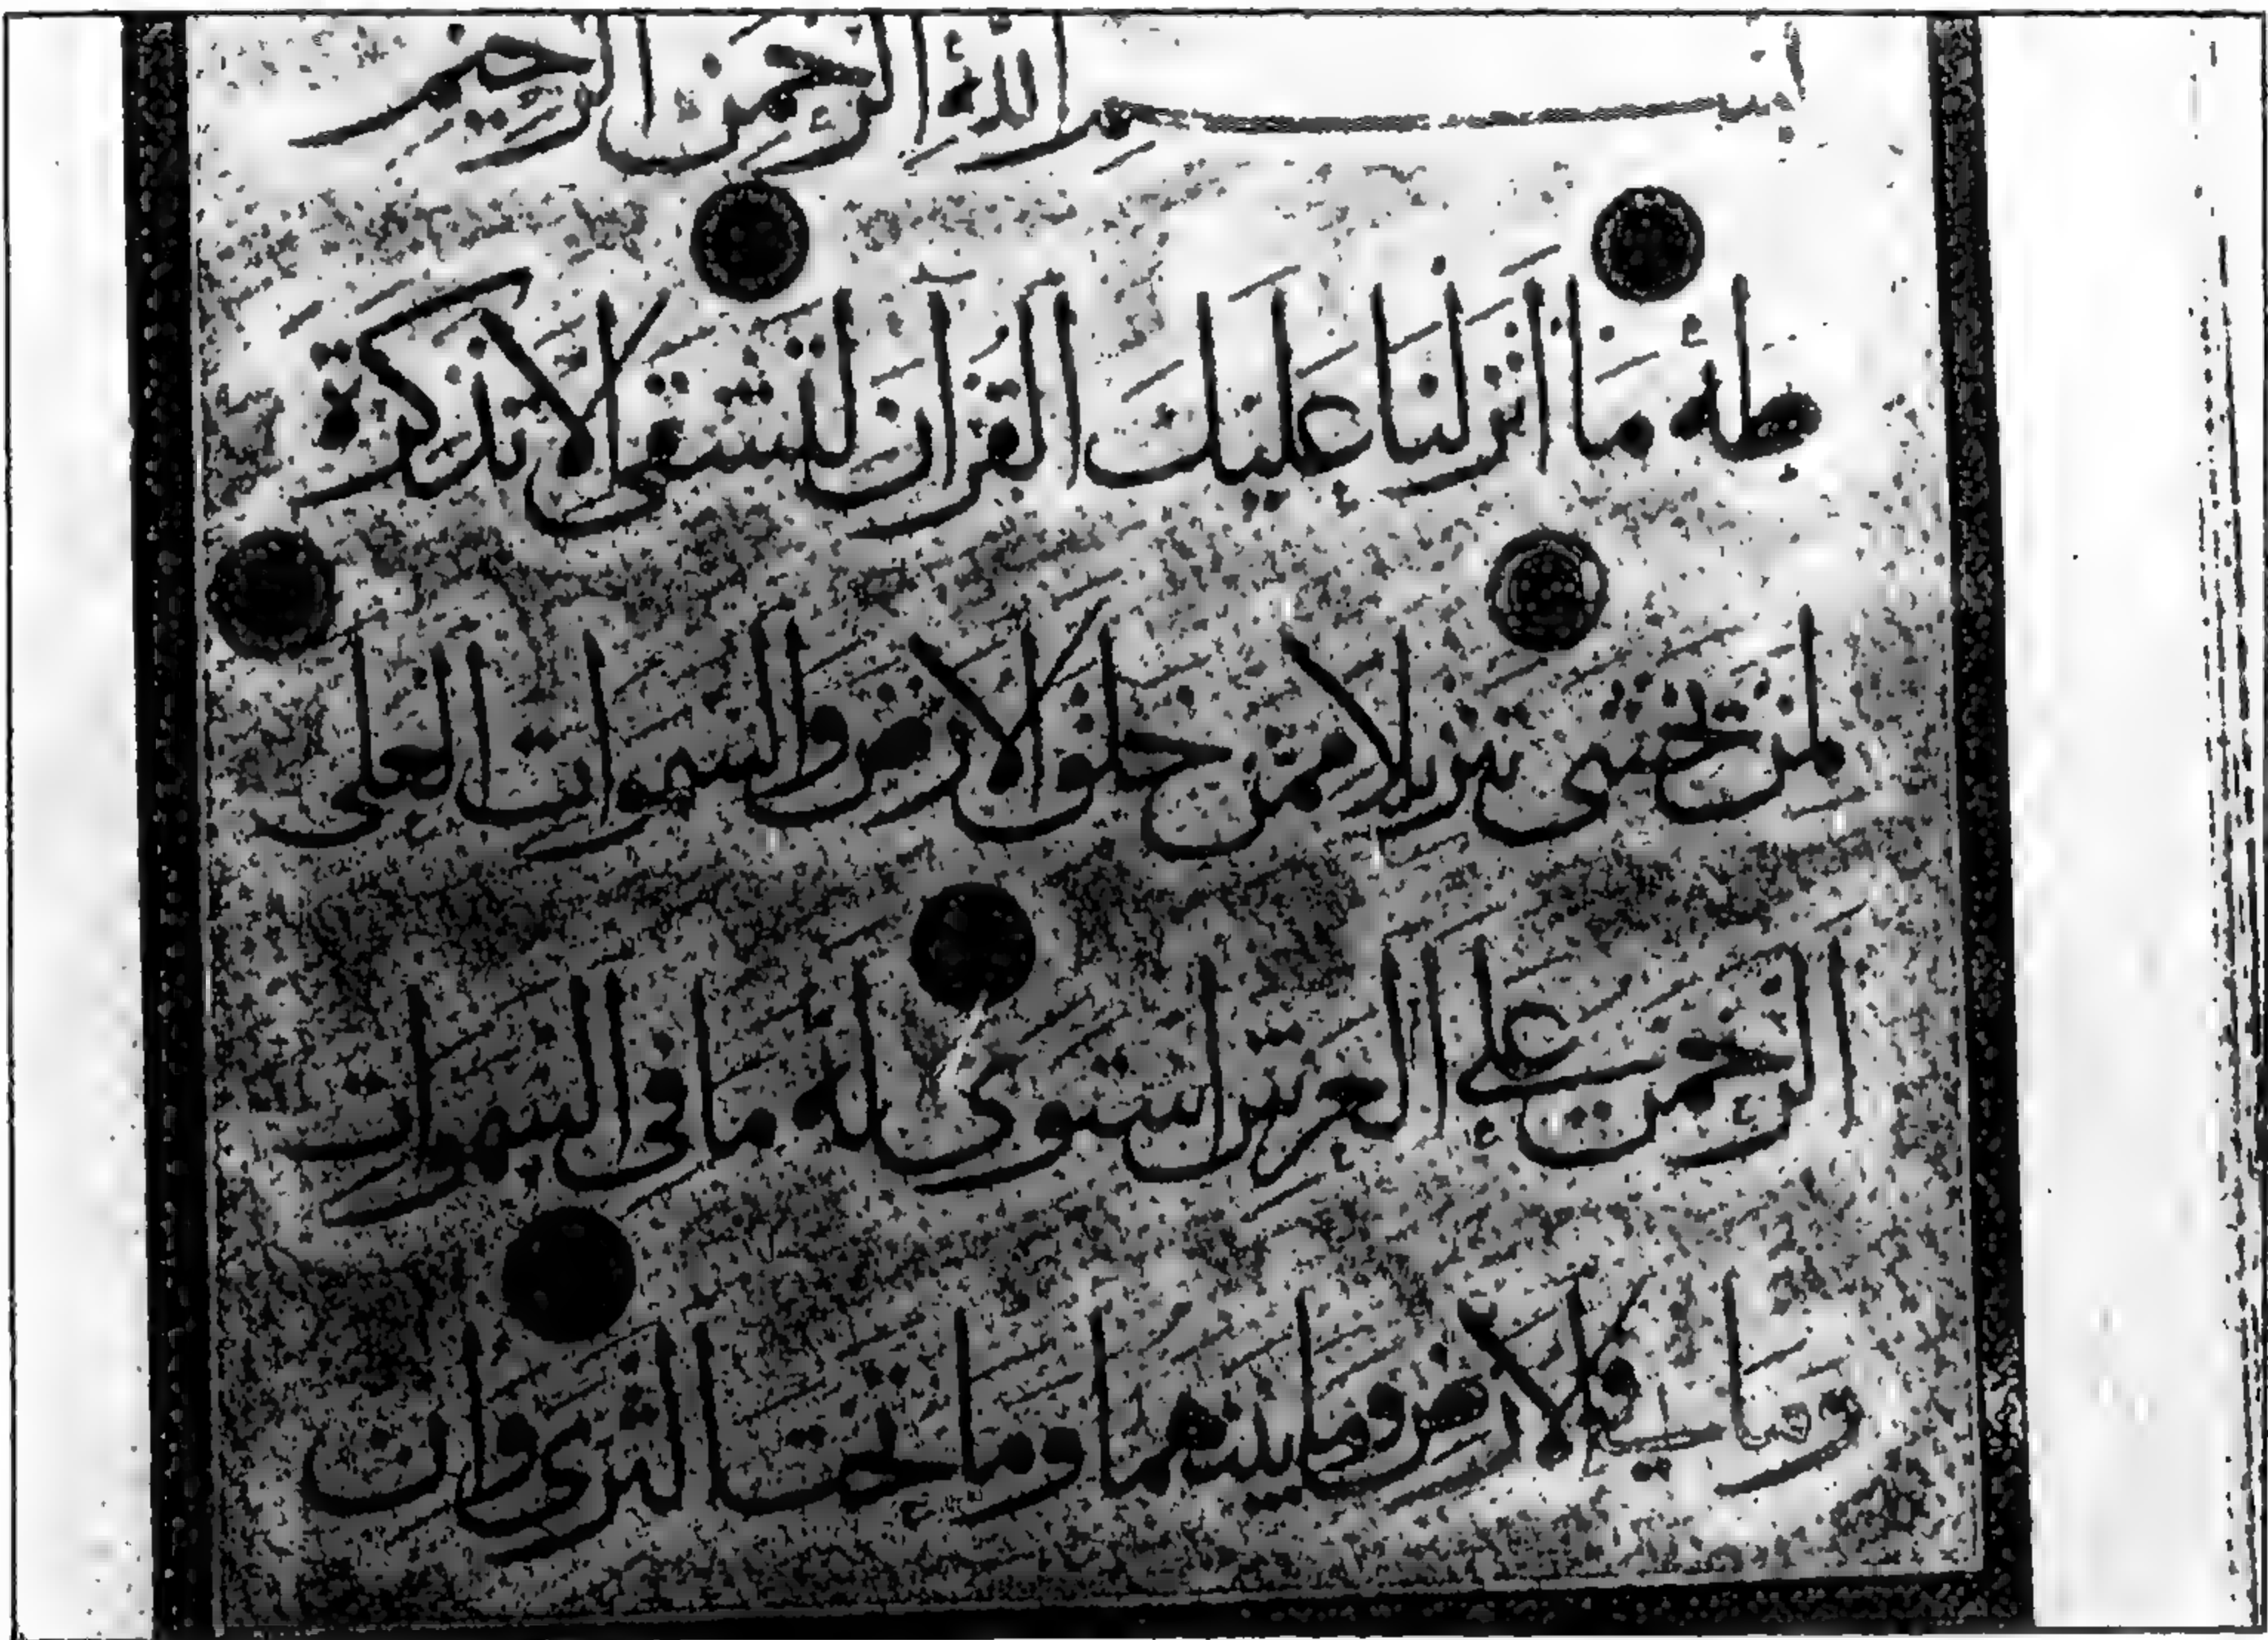 بسم الله الرحمن الرحيم
طه ما أنزلنا عليك القرآن لتشقى إلا تذكرة
لمن يخشى تنزيلا ممن خلق الأرض والسموات العلى
الرحمن على العرش استوى له ما في السموات
وما في الأرض وما بينهما وما تحت الثرى وإن